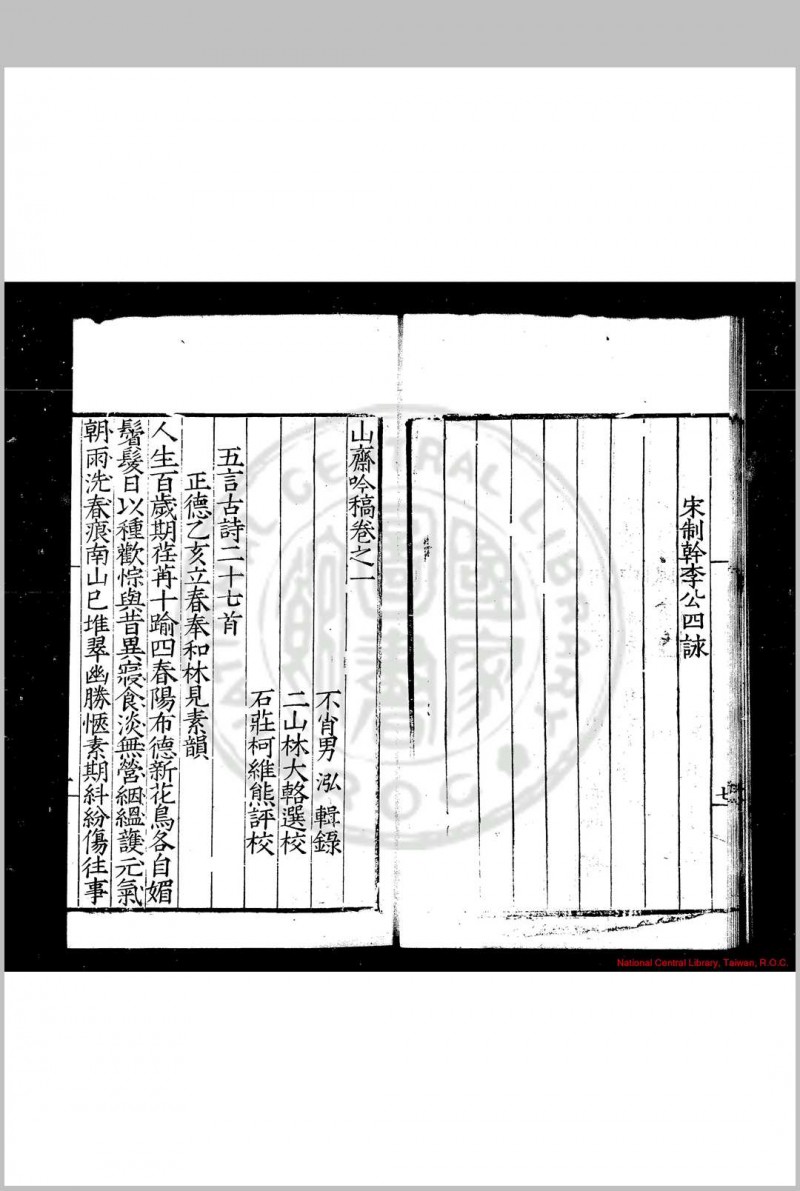 宋制幹李公四詠
七
山齋吟稿卷之一
不肖男泓輯錄
二山林大輅選校
石莊柯維熊評校
五言古詩二十七首
正德乙亥立春奉和林見素韻
人生百歲期荏苒十踰四春陽布德新花鳥各自媚
鬢髮日以種歡悰與昔異寢食淡無營絪縕護元氣
朝雨洗春痕南山已堆翠幽勝愜素期糾紛傷往事
國家圖書館
NATIONAL CENTRAL LIBRARY
R.O.C.
National Central Library, Taiwan, R.O.C.